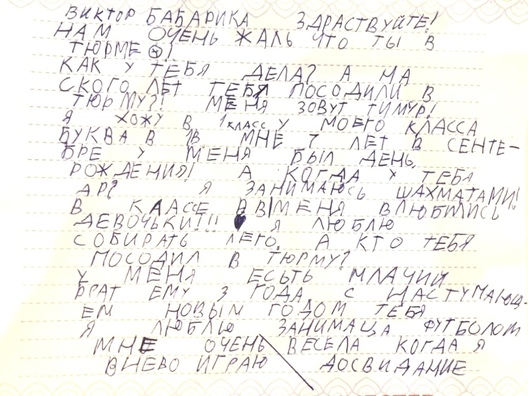 ВИКТОР БАБАРИКА ЗДРАСТВУЙТЕ!
НАМ ОЧЕНЬ ЖАЛЬ ЧТО ТЫ В
ТЮРМЕ ☹!
КАК У ТЕБЯ ДЕЛА? А НА
СКОГО ЛЕТ ТЕБЯ ПОСОДИЛИ В
ТЮРМУ?! МЕНЯ ЗОВУТ ТИМУР!
Я ХОЖУ В 1 КЛАСС У МОЕГО КЛАССА
БУКВА В 1В МНЕ 7 ЛЕТ В СЕНТЕ-
БРЕ У МЕНЯ БЫЛ ДЕНЬ
РОЖДЕНИЯ! А КОГДА У ТЕБЯ
ДР? Я ЗАНИМАЮСЬ ШАХМАТАМИ!
В КЛАССЕ В МЕНЯ ВЛЮБИЛИСЬ
ДЕВОЧЬКИ!!! ♥ Я ЛЮБЛЮ
СОБИРАТЬ ЛЕГО. А КТО ТЕБЯ
ПОСОДИЛ В ТЮРМУ?
У МЕНЯ ЕСЬТЬ МЛАЧИЙ
БРАТ ЕМУ 3 ГОДА С НАСТУПАЮЩ-
ЕМ НОВЫМ ГОДОМ ТЕБЯ
Я ЛЮБЛЮ ЗАНИМАЦА ФУТБОЛОМ
МНЕ ОЧЕНЬ ВЕСЕЛА КОГДА Я
ВНЕВО ИГРАЮ ДОСВИДАНИЕ